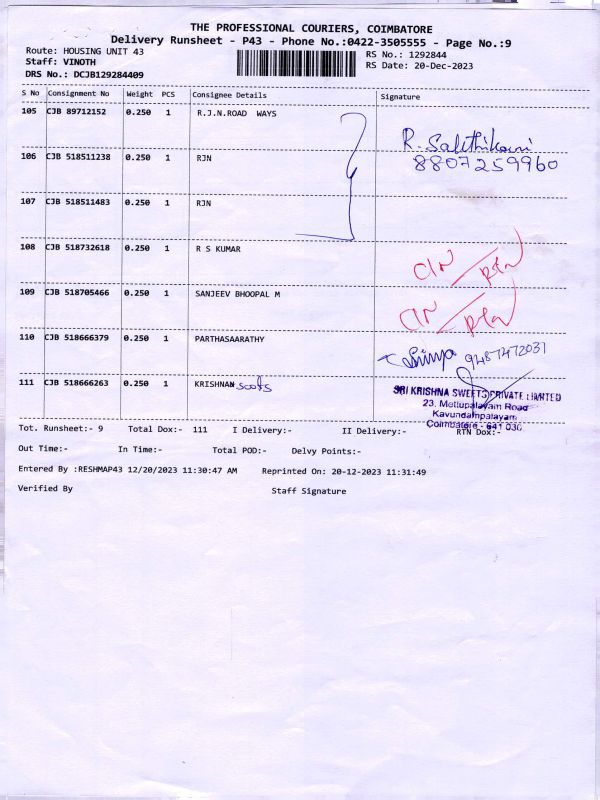 THE PROFESSIONAL COURIERS, COIMBATORE
Delivery Runsheet - P43 - Phone No.:0422-3505555 - Page No.:9
Route: HOUSING UNIT 43
RS No.: 1292844
Staff: VINOTH
RS Date: 20-Dec-2023
DRS No.: DCJB129284409
S No Consignment No Weight PCS Consignee Details Signature
105 CJB 89712152 0.250 1 R.J.N.ROAD WAYS
R. Sakthikani
8807259960
106 CJB 518511238 0.250 1 RJN
107 CJB 518511483 0.250 1 RJN
108 CJB 518732618 0.250 1 R S KUMAR
CIN / RTN
109 CJB 518705466 0.250 1 SANJEEV BHOOPAL M
CIN / RTN
110 CJB 518666379 0.250 1 PARTHASAARATHY
9487472031
111 CJB 518666263 0.250 1 KRISHNAN
SRI KRISHNA SWEETS PRIVATE LIMITED
23, Mettupalayam Road
Kavundampalayam
Coimbatore - 641 030
Tot. Runsheet:- 9 Total Dox:- 111 I Delivery:- II Delivery:- RTN Dox:-
Out Time:- In Time:- Total POD:- Delvy Points:-
Entered By :RESHMAP43 12/20/2023 11:30:47 AM Reprinted On: 20-12-2023 11:31:49
Verified By Staff Signature